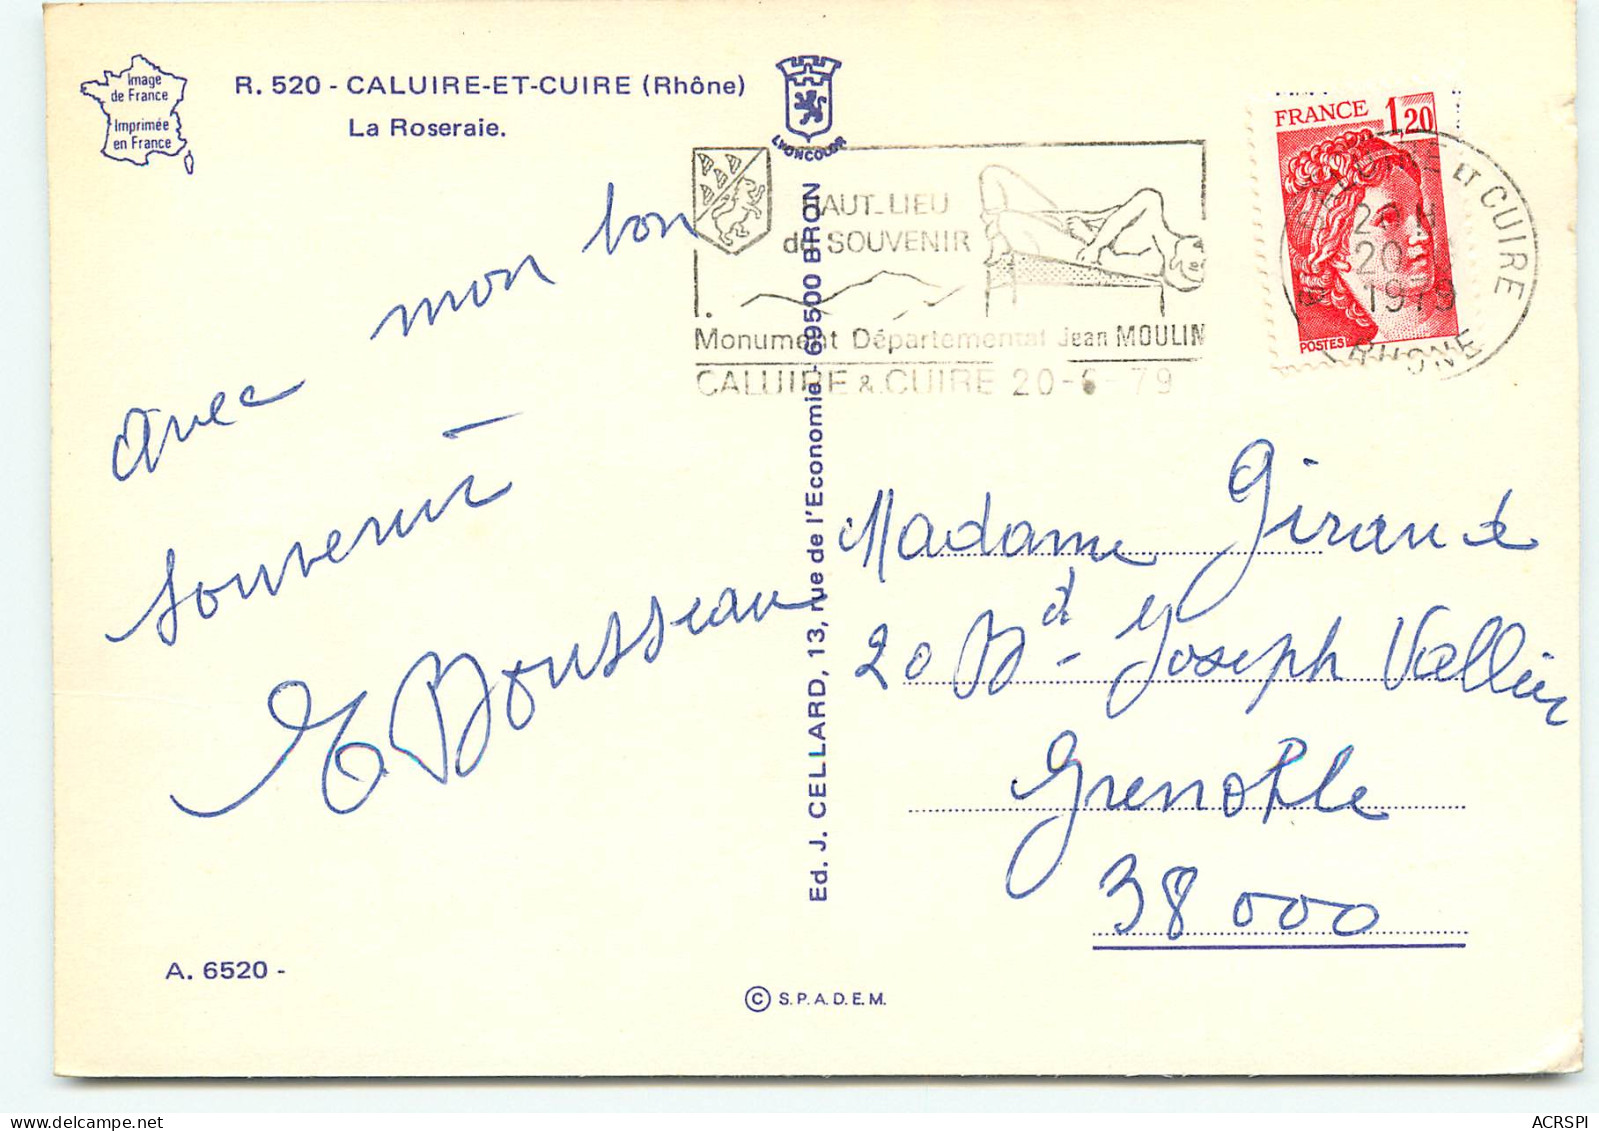 Image
de France
Imprimée
en France
R. 520 - CALUIRE-ET-CUIRE (Rhône)
La Roseraie.
LYONCOLOR
HAUT-LIEU
du SOUVENIR
Monument Départemental Jean MOULIN
CALUIRE & CUIRE 20-6-79
FRANCE 1,20
POSTES
ET CUIRE
20
1979
RHONE
avec mon bon
souvenir
E Bousseau
Ed. J. CELLARD, 13, rue de l'Economie - 69500 BRON
Madame Giraud
20 Bd Joseph Vallier
Grenoble
38000
A. 6520 -
© S.P.A.D.E.M.
ACRSPI